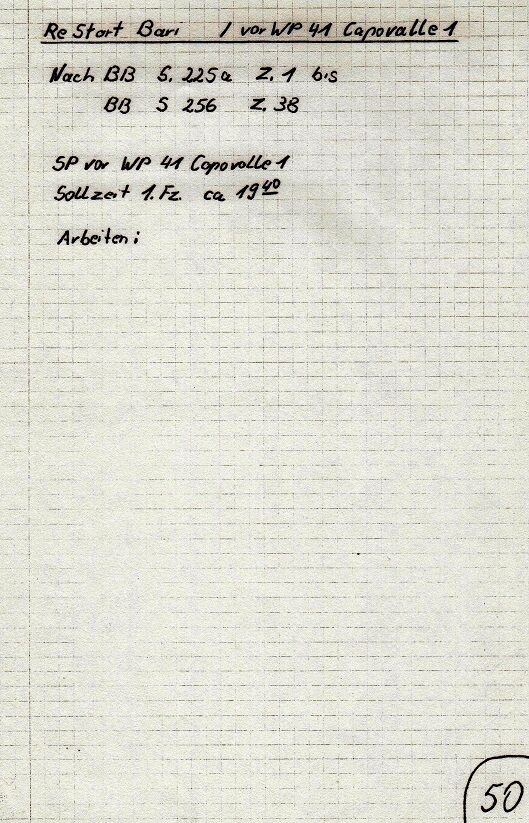 Re Start Bari / vor WP 41 Capovalle 1
Nach BB S. 225a Z. 1 bis
BB S 256 Z. 38
SP vor WP 41 Capovalle 1
Sollzeit 1. Fz. ca 19 40
Arbeiten :
50